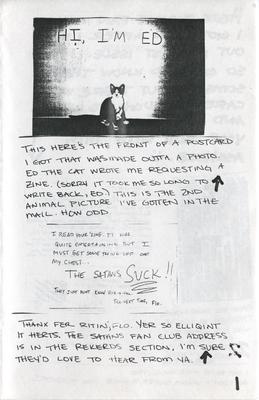 HI, I'M ED
THIS HERE'S THE FRONT OF A POSTCARD
I GOT THAT WAS MADE OUTTA A PHOTO.
ED THE CAT WROTE ME REQUESTING A
ZINE. (SORRY IT TOOK ME SO LONG TO
WRITE BACK, ED.) THIS IS THE 2ND
ANIMAL PICTURE I'VE GOTTEN IN THE
MAIL. HOW ODD.
I READ YOUR 'ZINE. IT WAS
QUITE ENTERTAINING BUT I
MUST GET SOMETHING OFF OF
MY CHEST...
THE SATANS SUCK!!
THEY JUST DON'T KNOW
TIL NEXT TIME, FLO.
THANX FER RITIN', FLO. YER SO ELLIQINT
IT HERTS. THE SATANS FAN CLUB ADDRESS
IS IN THE REKERDS SECTION, I'M SURE
THEY'D LOVE TO HEAR FROM YA.
1